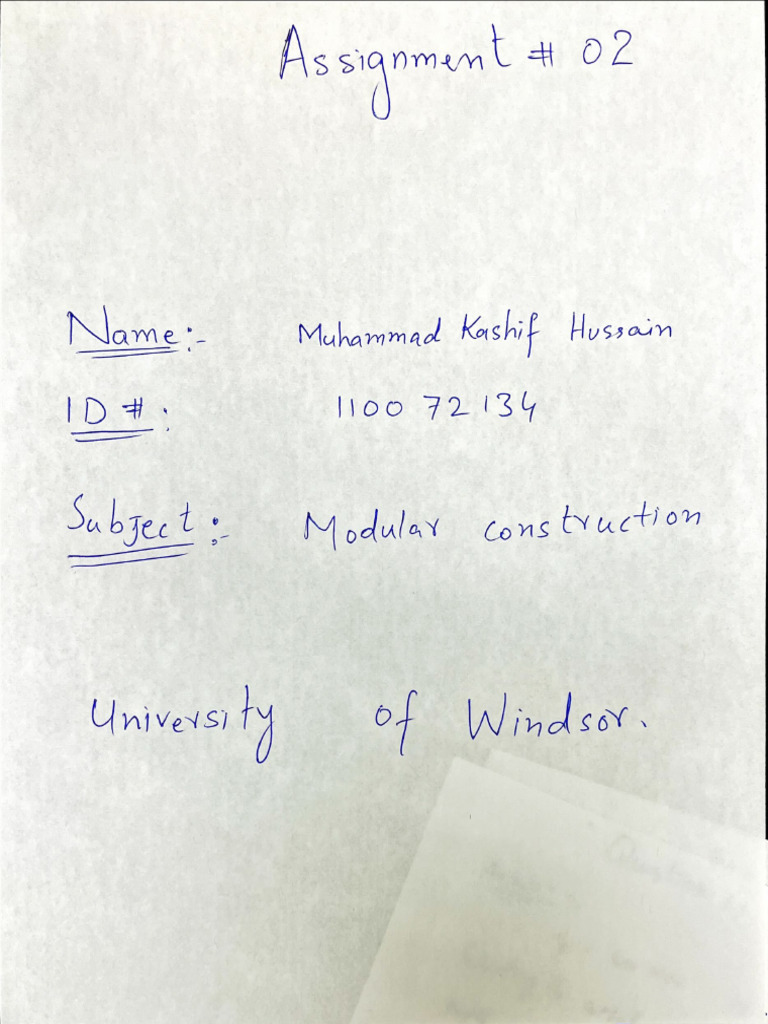 Assignment # 02
Name:- Muhammad Kashif Hussain
ID #: 1100 72134
Subject:- Modular construction
University of Windsor.